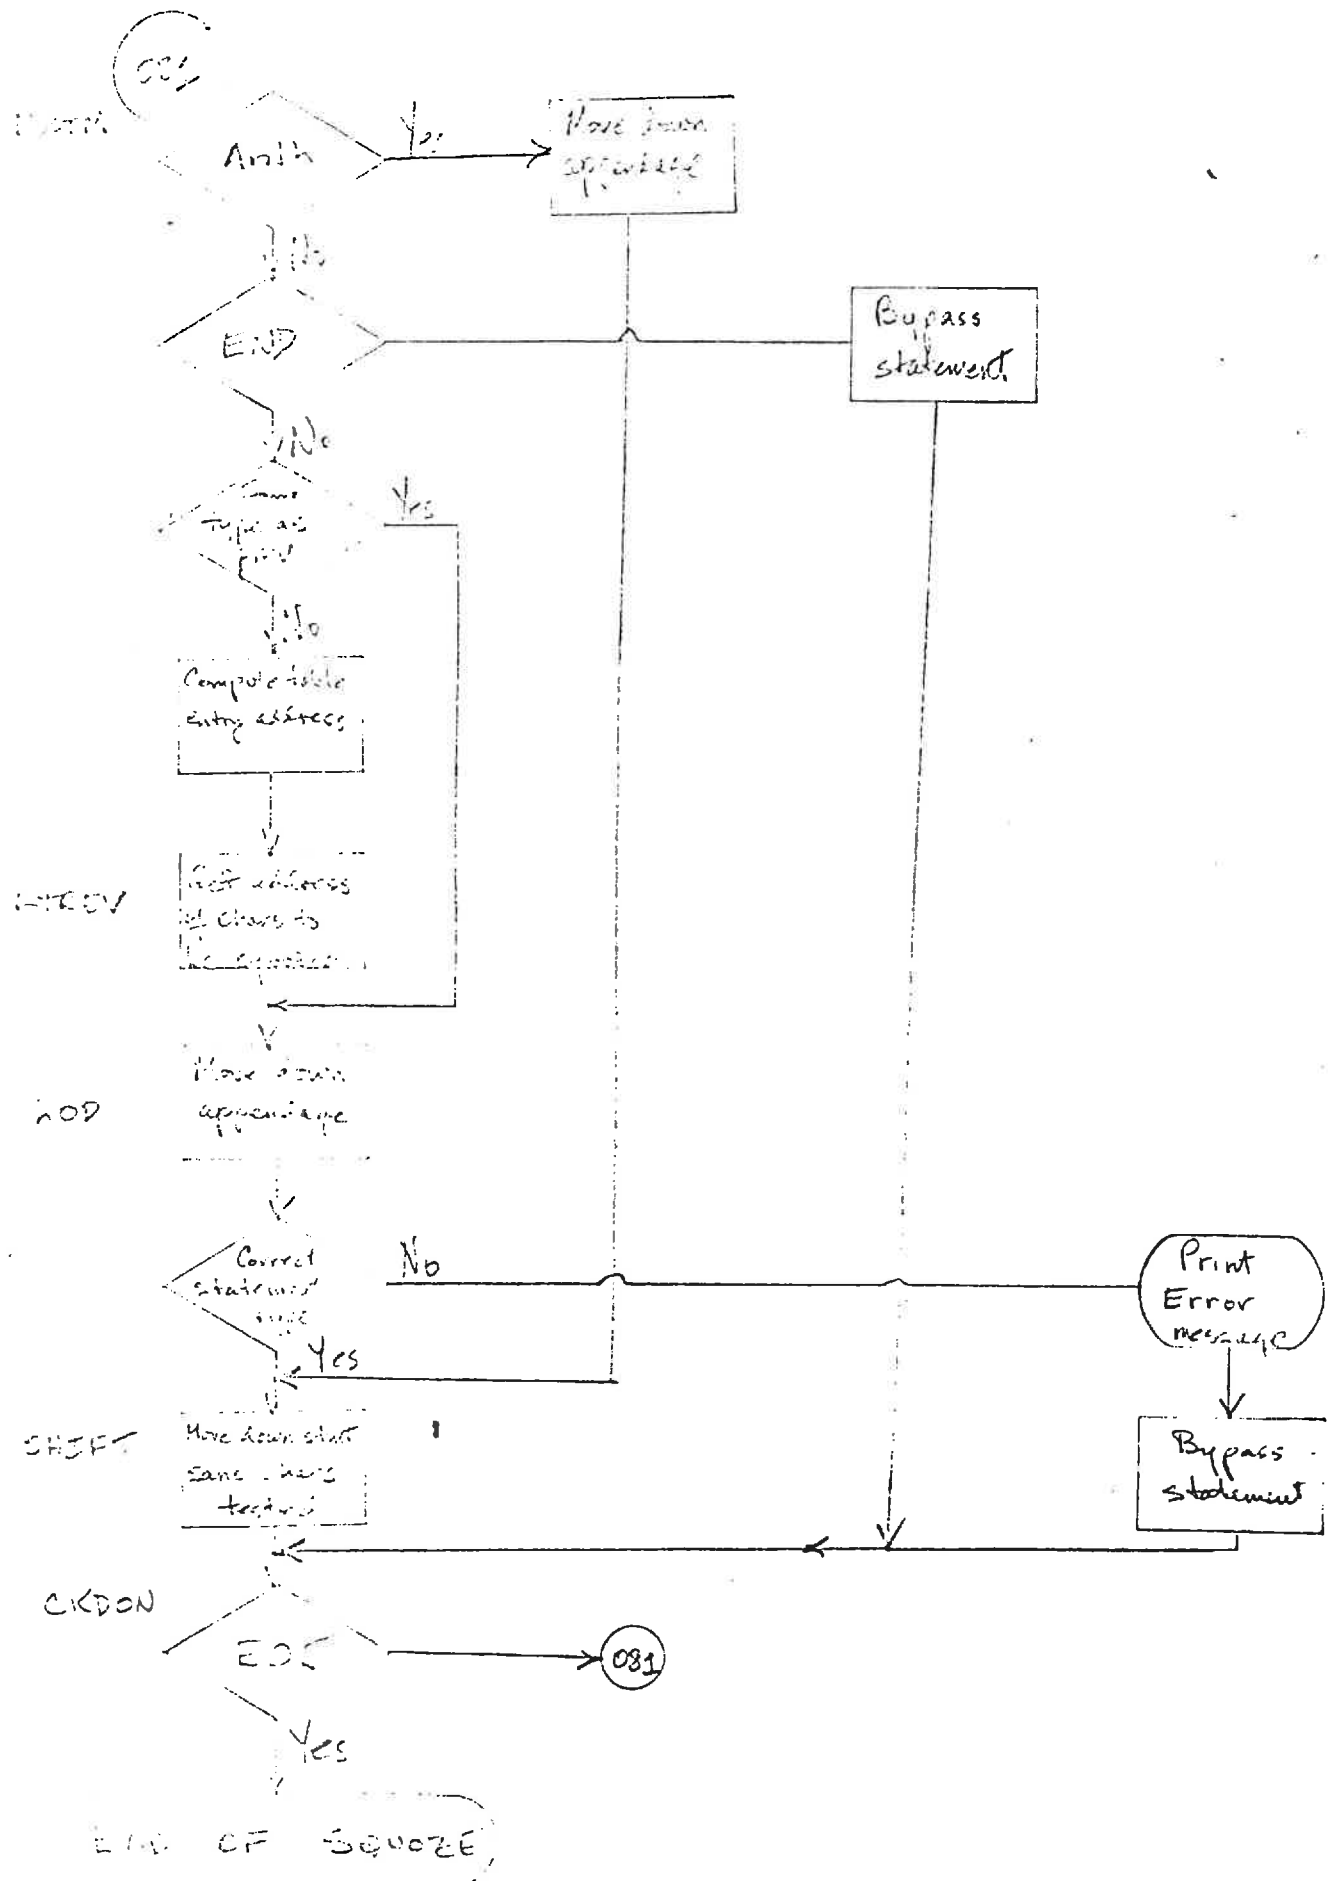 081
Arith
Yes
Move down
appendage
No
END
Bypass
statement
No
Same
type as
prev
Yes
No
Compute table
entry address
Get address
of chars to
be
Move down
appendage
Correct
statement
type
No
Print
Error
message
Yes
SHIFT
Move down stmt
sans chars
tested
Bypass
statement
CKDON
081
Yes
END OF SQUOZE